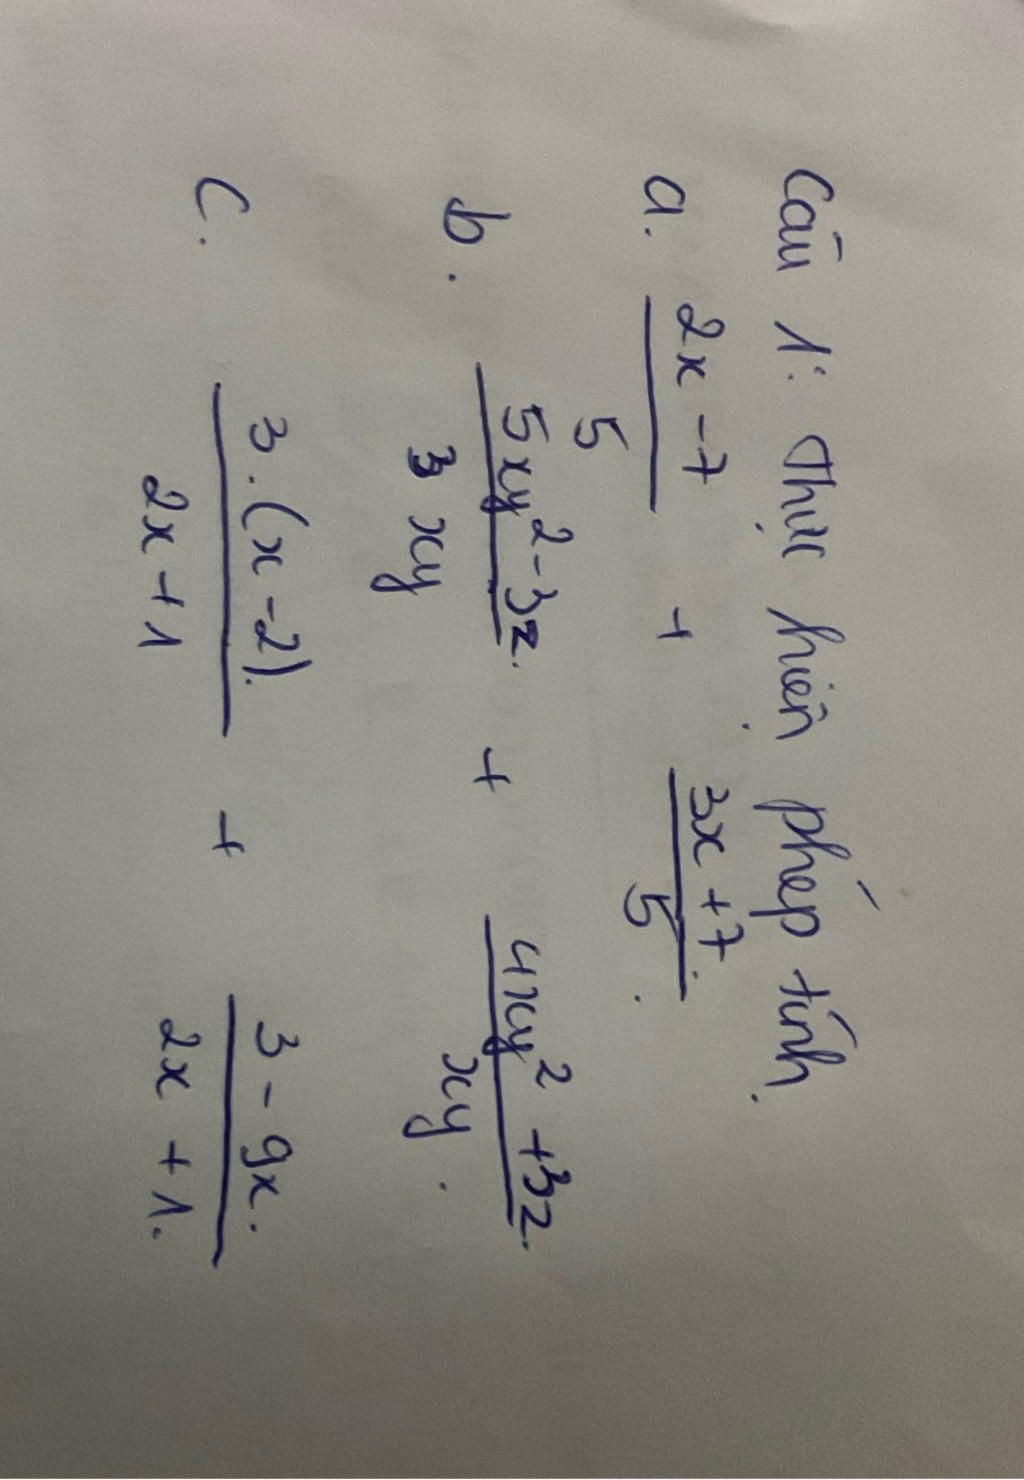 Câu 1: Thực hiện phép tính.
a. \frac{2x - 7}{5} + \frac{3x + 7}{5}.
b. \frac{5xy^2 - 3z}{3xy} + \frac{4xy^2 + 3z}{xy}.
c. \frac{3.(x - 2)}{2x + 1} + \frac{3 - 9x}{2x + 1}.